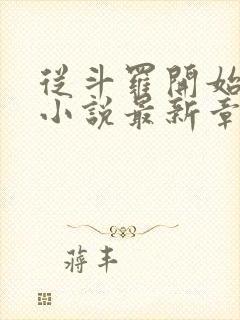 從斗羅開始
小說最新章
蔣丰